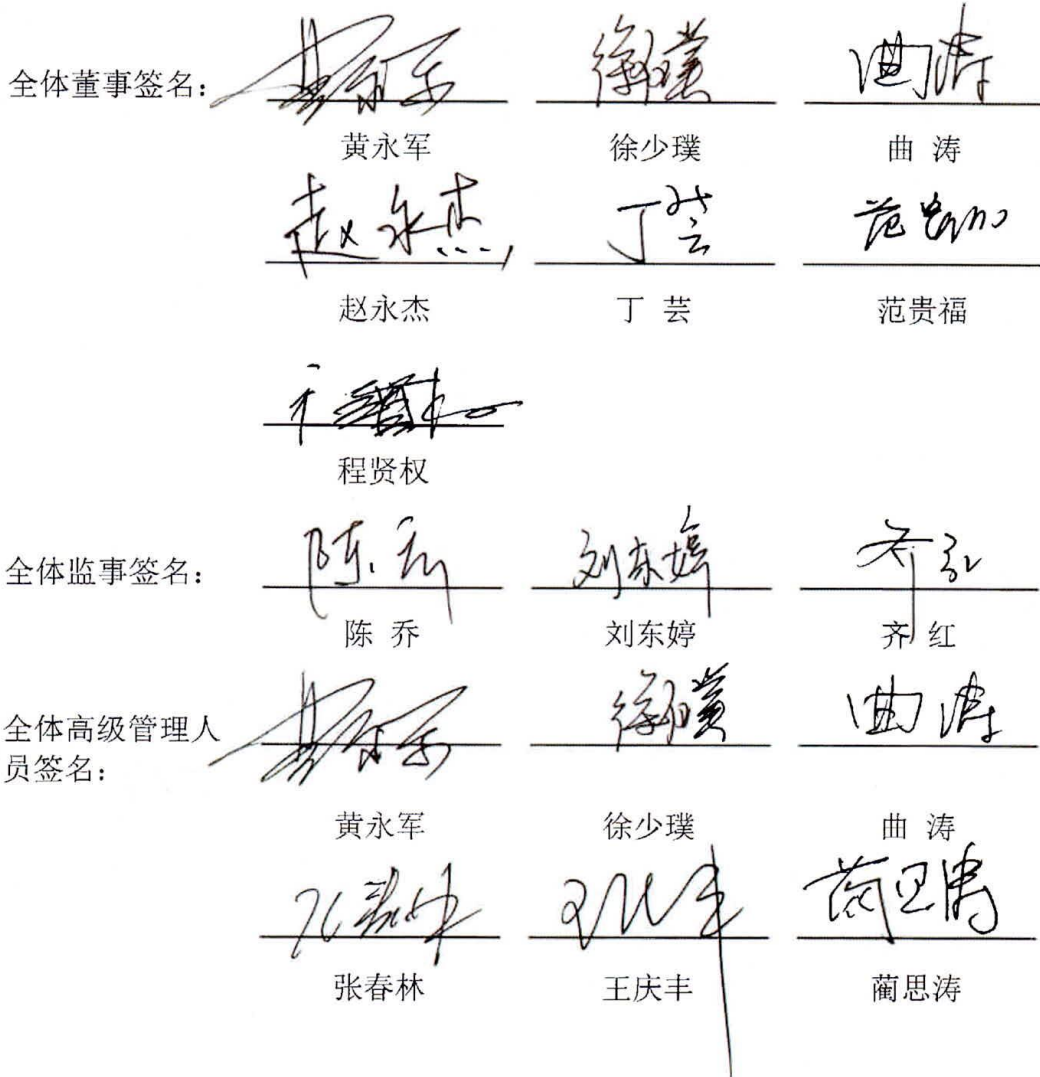 全体董事签名：
黄永军 徐少璞 曲 涛
赵永杰 丁 芸 范贵福
程贤权
全体监事签名：
陈 乔 刘东婷 齐 红
全体高级管理人
员签名：
黄永军 徐少璞 曲 涛
张春林 王庆丰 蔺思涛